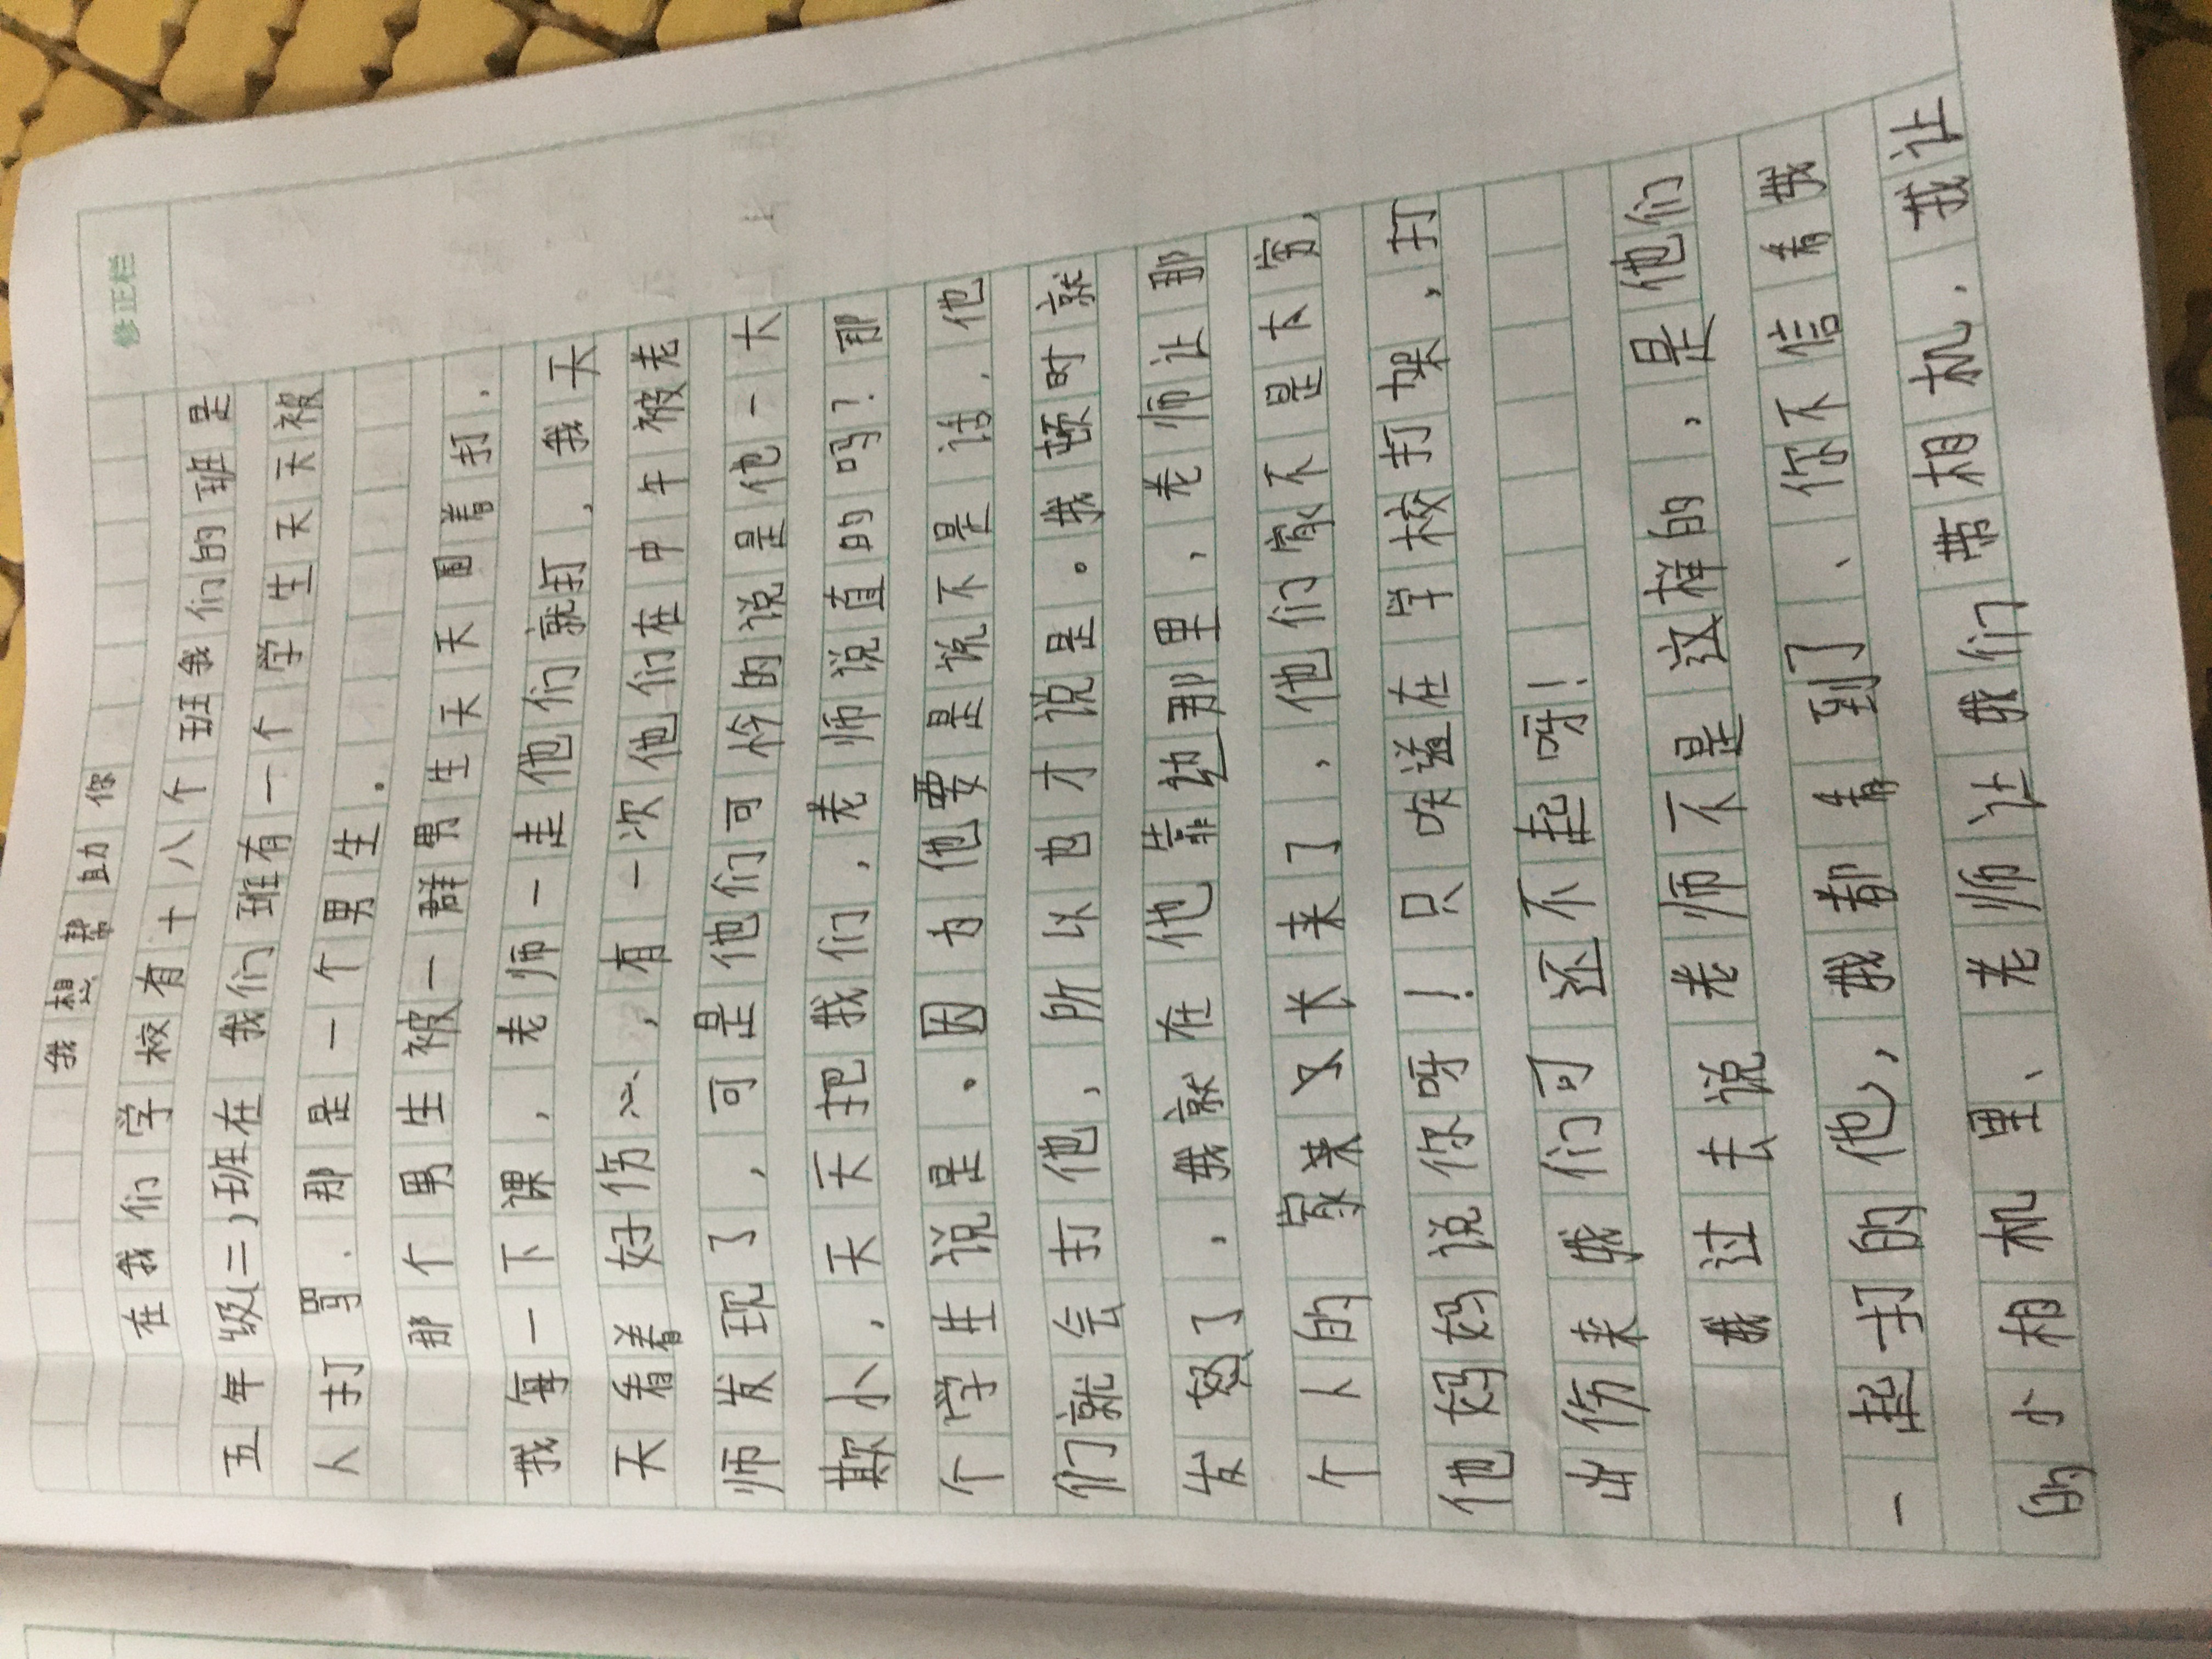 修正栏
我想帮助你
在我们学校有十八个班我们的班是
五年级(二)班在我们班有一个学生天天被
人打骂.那是一个男生.
那个男生被一群男生天天围着打.
我每一下课,老师一走他们就打.我天
天看着好伤心,有一次他们在中午被老
师发现了,可是他们可怜的说是他一大
欺小,天天把我们,老师说直的吗?那
个学生说是.因为他要是说不是话.他
们就会打他,所以也才说是.我顿时就
发怒了.我就在他靠边那里,老师让那
个人的家来又长来了,他们家不是大穷,
他妈妈说你呀!只啋滋在学校打架,打
出伤来我们可还不起呀!
我过去说老师不是这样的,是他们
一起打的他,我都看到了、你不信看我
的小相机里、老师让我们带相机.我让